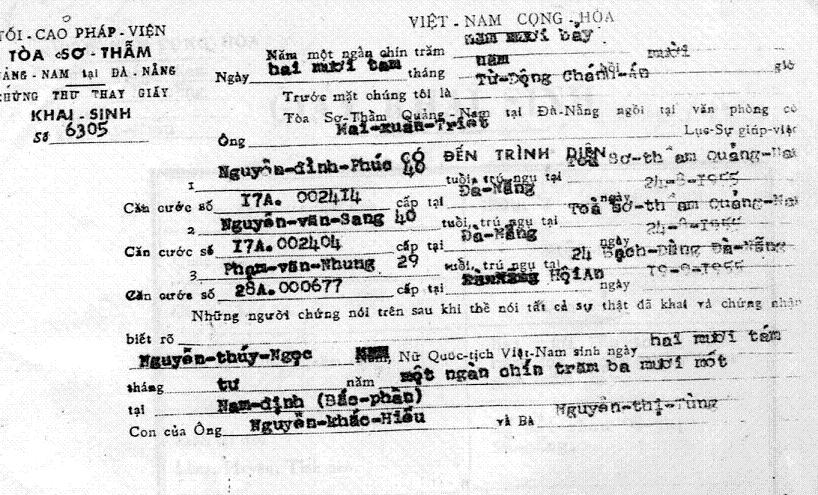 TỐI - CAO PHÁP - VIỆN
TÒA SƠ - THẨM
QUẢNG - NAM tại ĐÀ - NẴNG
CHỨNG THƯ THAY GIẤY
KHAI - SINH
Số 6305
VIỆT - NAM CỘNG - HÒA
Năm một ngàn chín trăm năm mươi bảy
Ngày hai mươi tám tháng năm hồi mười giờ
Trước mặt chúng tôi là Từ-Động Chánh-Án
Tòa Sơ-Thẩm Quảng-Nam tại Đà-Nẵng ngồi tại văn phòng có
Ông Mai-xuân-Triết Lục-Sự giúp-việc
CÓ ĐẾN TRÌNH DIỆN
1 Nguyễn-đình-Phúc 40 tuổi, trú ngụ tại Toà Sơ-thẩm Quảng-Na
Căn cước số 17A. 002414 cấp tại Đa-Nẵng ngày 24-8-1955
2 Nguyễn-văn-Sang 40 tuổi, trú ngụ tại Toà Sơ-thẩm Quảng-Na
Căn cước số 17A.002404 cấp tại Đa-Nẵng ngày 24-8-1955
3 Phạm-văn-Nhung 29 tuổi, trú ngụ tại 24 Bạch-Đằng Đà-Nẵng
Căn cước số 28A.000677 cấp tại HộiAn ngày 19-8-1955
Những người chứng nói trên sau khi thề nói tất cả sự thật đã khai và chứng nhận
biết rõ
Nguyễn-thúy-Ngọc Nữ Quốc-tịch Việt-Nam sinh ngày hai mươi tám
tháng tư năm một ngàn chín trăm ba mươi mốt
tại Nam-định (Bắc-phần)
Con của Ông Nguyễn-khắc-Hiếu và Bà Nguyễn-thị-Tùng